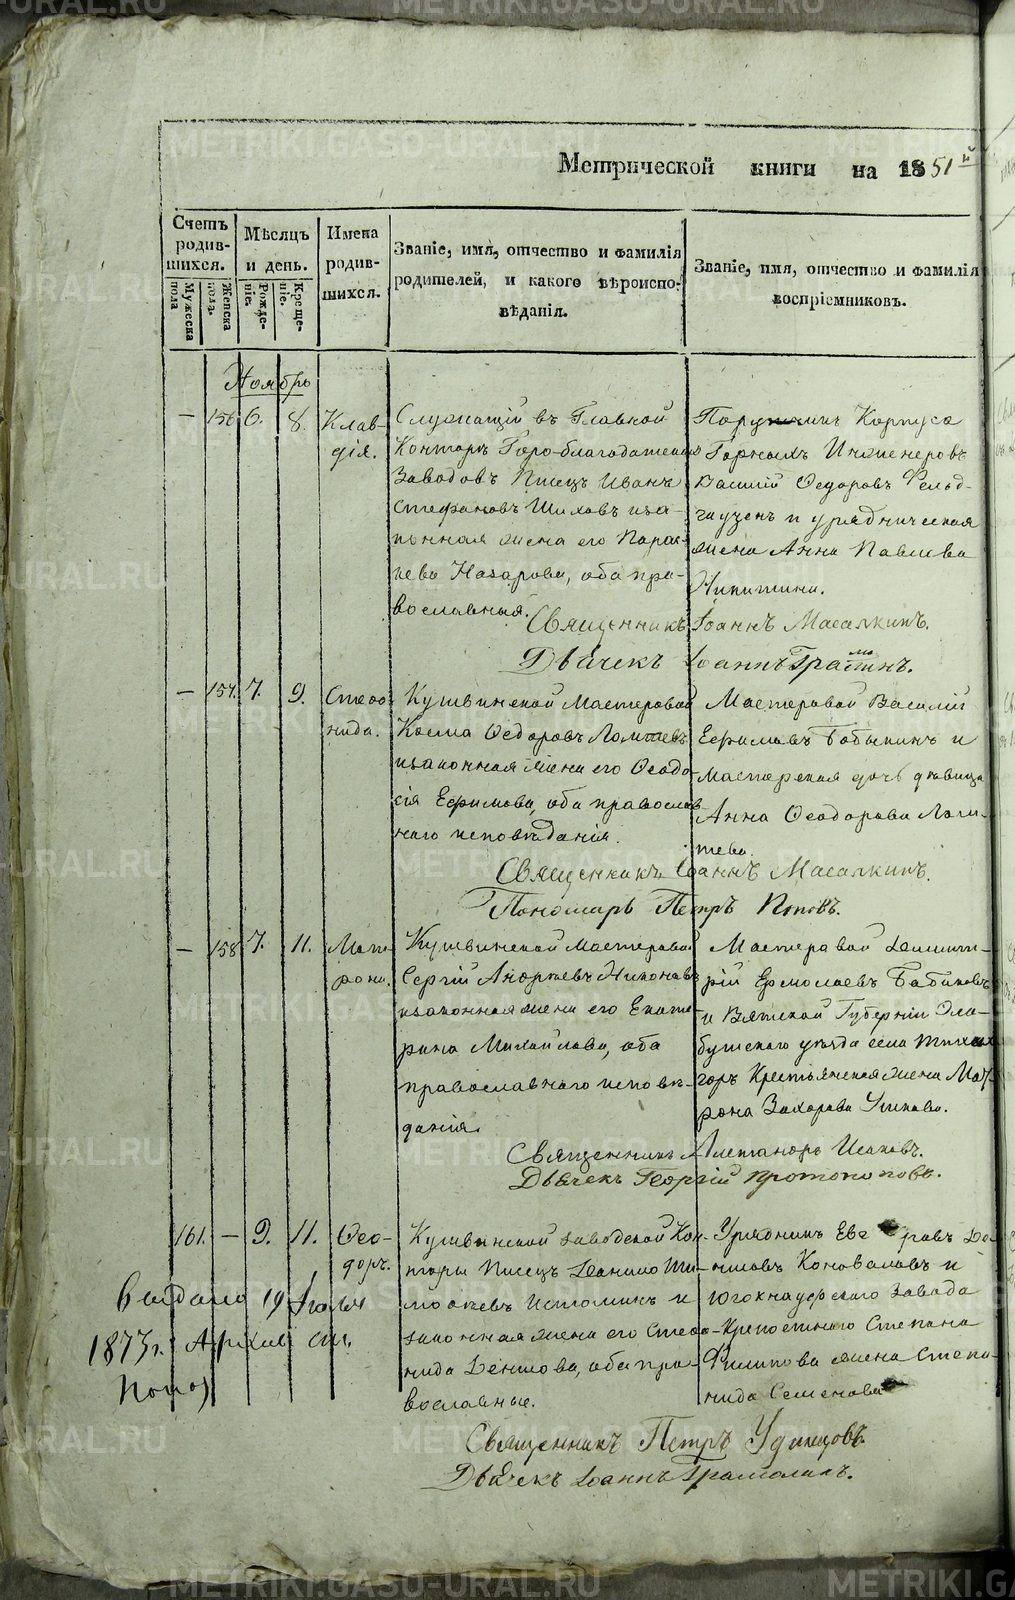 Метрической книги на 1851й
Счетъ родив-шихся.
Мужеска пола
Женска пола.
Мѣсяцъ и день.
Рожде-ніе.
Креще-ніе.
Имена родив-шихся.
Званіе, имя, отчество и фамилія
родителей, и какого вѣроиспо-
вѣданія.
Званіе, имя, отчество и фамилія
воспріемниковъ.
Ноябрь
— 156 6. 8. Клав-
дія.
Служащій въ Главной
Конторѣ Горо-благодатскихъ
Заводовъ Писецъ Иванъ
Стефановъ Шиховъ иза-
конная жена его Парас-
кева Назарова, оба пра-
вославныя.
Поручикъ Корпуса
Горныхъ Инженеровъ
Василій Ѳедоровъ Фельд-
гаузенъ и урядническая
жена Анна Павлова
Никитина.
Священникъ Іоаннъ Масалкинъ.
Дьячекъ Іоаннъ Грамолинъ.
— 157. 7. 9. Стеѳо-
нида.
Кушвинской Мастеровой
Косма Ѳедоровъ Ломтевъ
изаконная жена его Ѳеодо-
сія Ефимова, оба православ-
наго исповѣданія.
Мастеровой Василій
Ефимовъ Бабыкинъ и
мастерская дочь дѣвица
Анна Ѳеодорова Лом-
тева.
Священникъ Іоаннъ Масалкинъ.
Пономарь Петръ Поповъ.
— 158 7. 11. Мат-
рона.
Кушвинской Мастеровой
Сергій Андреевъ Никоновъ
изаконная жена его Екате-
рина Михайлова, оба
православнаго исповѣ-
данія.
Мастеровой Димит-
рій Ермолаевъ Бабиковъ
и Вятской Губерніи Ела-
бужскаго уѣзда села Тихихъ
горъ Крестьянская жена Мат-
рона Захарова Ушкова.
Священникъ Александръ Исаковъ.
Дьячекъ Георгій Протопоповъ.
161. — 9. 11. Ѳео-
доръ.
Кушвинской заводской Кон-
торы Писецъ Даніилъ Ти-
моѳеевъ Истоминъ и
законная жена его Стеѳа-
нида Денисова, оба пра-
вославные.
Урядникъ Да-
ниловъ Коноваловъ и
Югокнауфскаго Завода
Крѣпостнаго Степана
Филипова жена Степа-
нида Семенова
Священникъ Петръ Удинцовъ.
Дьячекъ Іоаннъ Грамолинъ.
Выдано 19 Іюля
1873г.
METRIKI.GASO-URAL.RU